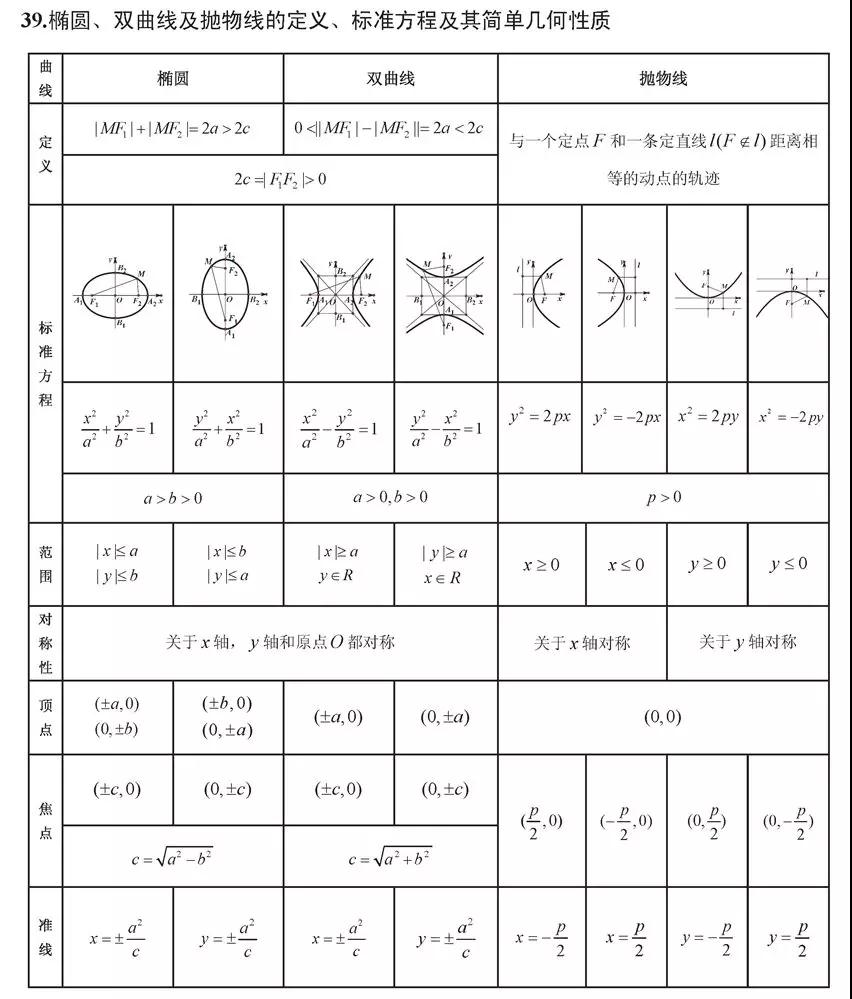 39.椭圆、双曲线及抛物线的定义、标准方程及其简单几何性质
曲线 椭圆 双曲线 抛物线
定义 |MF₁|+|MF₂|=2a>2c 0<||MF₁|-|MF₂||=2a<2c 与一个定点F和一条定直线l(F∉l)距离相
等的动点的轨迹
2c=|F₁F₂|>0
标准方程
y B₂ M A₁ F₁ O F₂ A₂ x B₁
y A₂ M F₂ B₁ O B₂ x F₁ A₁
y B₂ M F₁ A₁ O A₂ F₂ x B₁
y M F₂ A₂ B₁ O B₂ x A₁ F₁
l y M O F x
y l M F O x
y F M O x l
y l O x F M
x²/a²+y²/b²=1 y²/a²+x²/b²=1 x²/a²-y²/b²=1 y²/a²-x²/b²=1 y²=2px y²=-2px x²=2py x²=-2py
a>b>0 a>0,b>0 p>0
范围 |x|≤a |x|≤b |x|≥a |y|≥a x≥0 x≤0 y≥0 y≤0
|y|≤b |y|≤a y∈R x∈R
对称性 关于x轴，y轴和原点O都对称 关于x轴对称 关于y轴对称
顶点 (±a,0) (±b,0) (±a,0) (0,±a) (0,0)
(0,±b) (0,±a)
焦点 (±c,0) (0,±c) (±c,0) (0,±c) (p/2,0) (-p/2,0) (0,p/2) (0,-p/2)
c=√(a²-b²) c=√(a²+b²)
准线 x=±a²/c y=±a²/c x=±a²/c y=±a²/c x=-p/2 x=p/2 y=-p/2 y=p/2